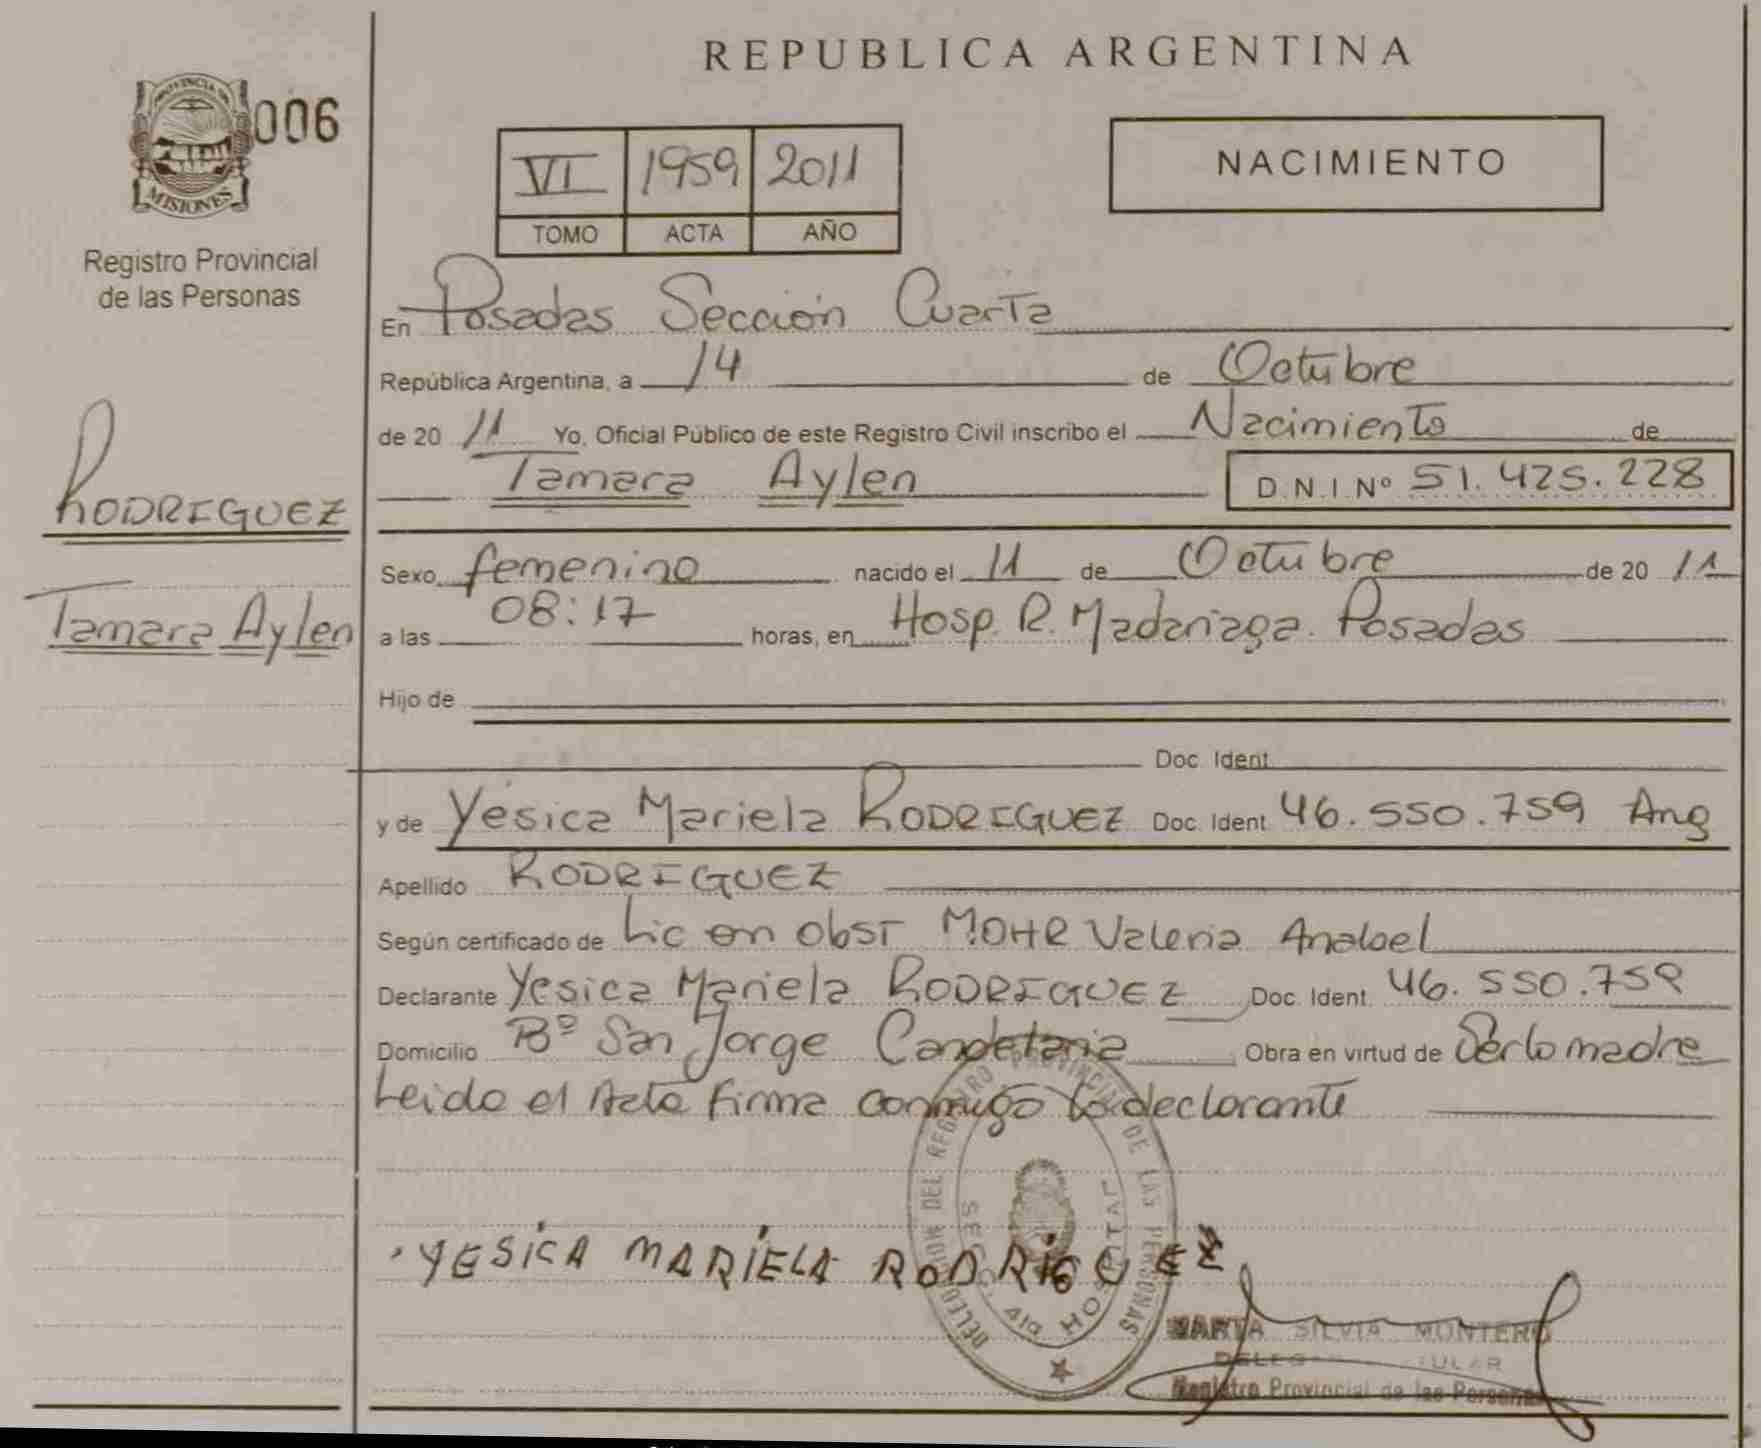 REPUBLICA ARGENTINA
PROVINCIA DE
MISIONES
006
Registro Provincial
de las Personas
RODRIGUEZ
Tamara Aylen
VI 1959 2011
TOMO ACTA AÑO
NACIMIENTO
En Posadas Sección Cuarta
República Argentina, a 14 de Octubre
de 20 11 Yo, Oficial Público de este Registro Civil inscribo el Nacimiento de
Tamara Aylen D.N.I Nº 51.425.228
Sexo femenino nacido el 11 de Octubre de 20 11
a las 08:17 horas, en Hosp. R. Madariaga. Posadas
Hijo de
Doc. Ident.
y de Yésica Mariela RODRIGUEZ Doc. Ident. 46.550.759 Arg
Apellido RODRIGUEZ
Según certificado de Lic en obst MOHR Valeria Anabel
Declarante Yesica Mariela RODRIGUEZ Doc. Ident. 46.550.759
Domicilio Bº San Jorge Candelaria Obra en virtud de Ser la madre
Leido el Acta firma conmigo la declarante
YESICA MARIELA RODRIGUEZ
DELEGACION DEL REGISTRO PROVINCIAL DE LAS PERSONAS
HOSPITAL
MARTA SILVIA MONTERO
Registro Provincial de las Personas